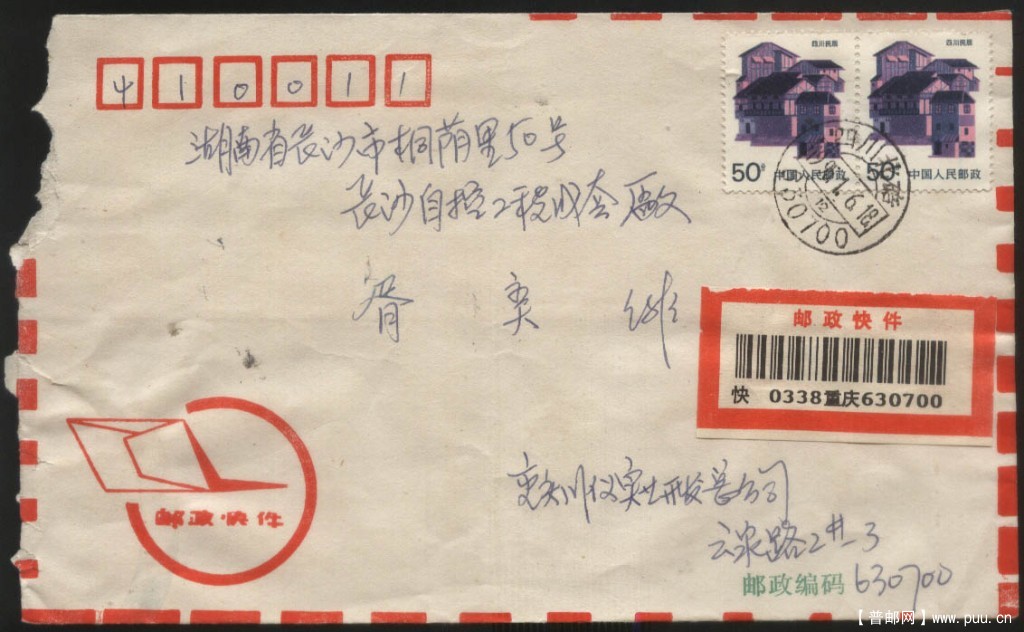 410011
四川民居
四川民居
50分 中国人民邮政
50分 中国人民邮政
湖南省长沙市桐荫里50号
长沙自控工程成套厂
邮政快件
快 0338重庆630700
630700
邮政快件
川仪实业开发总公司
云泉路2#-3
邮政编码 630700
【普邮网】www.puu.cn